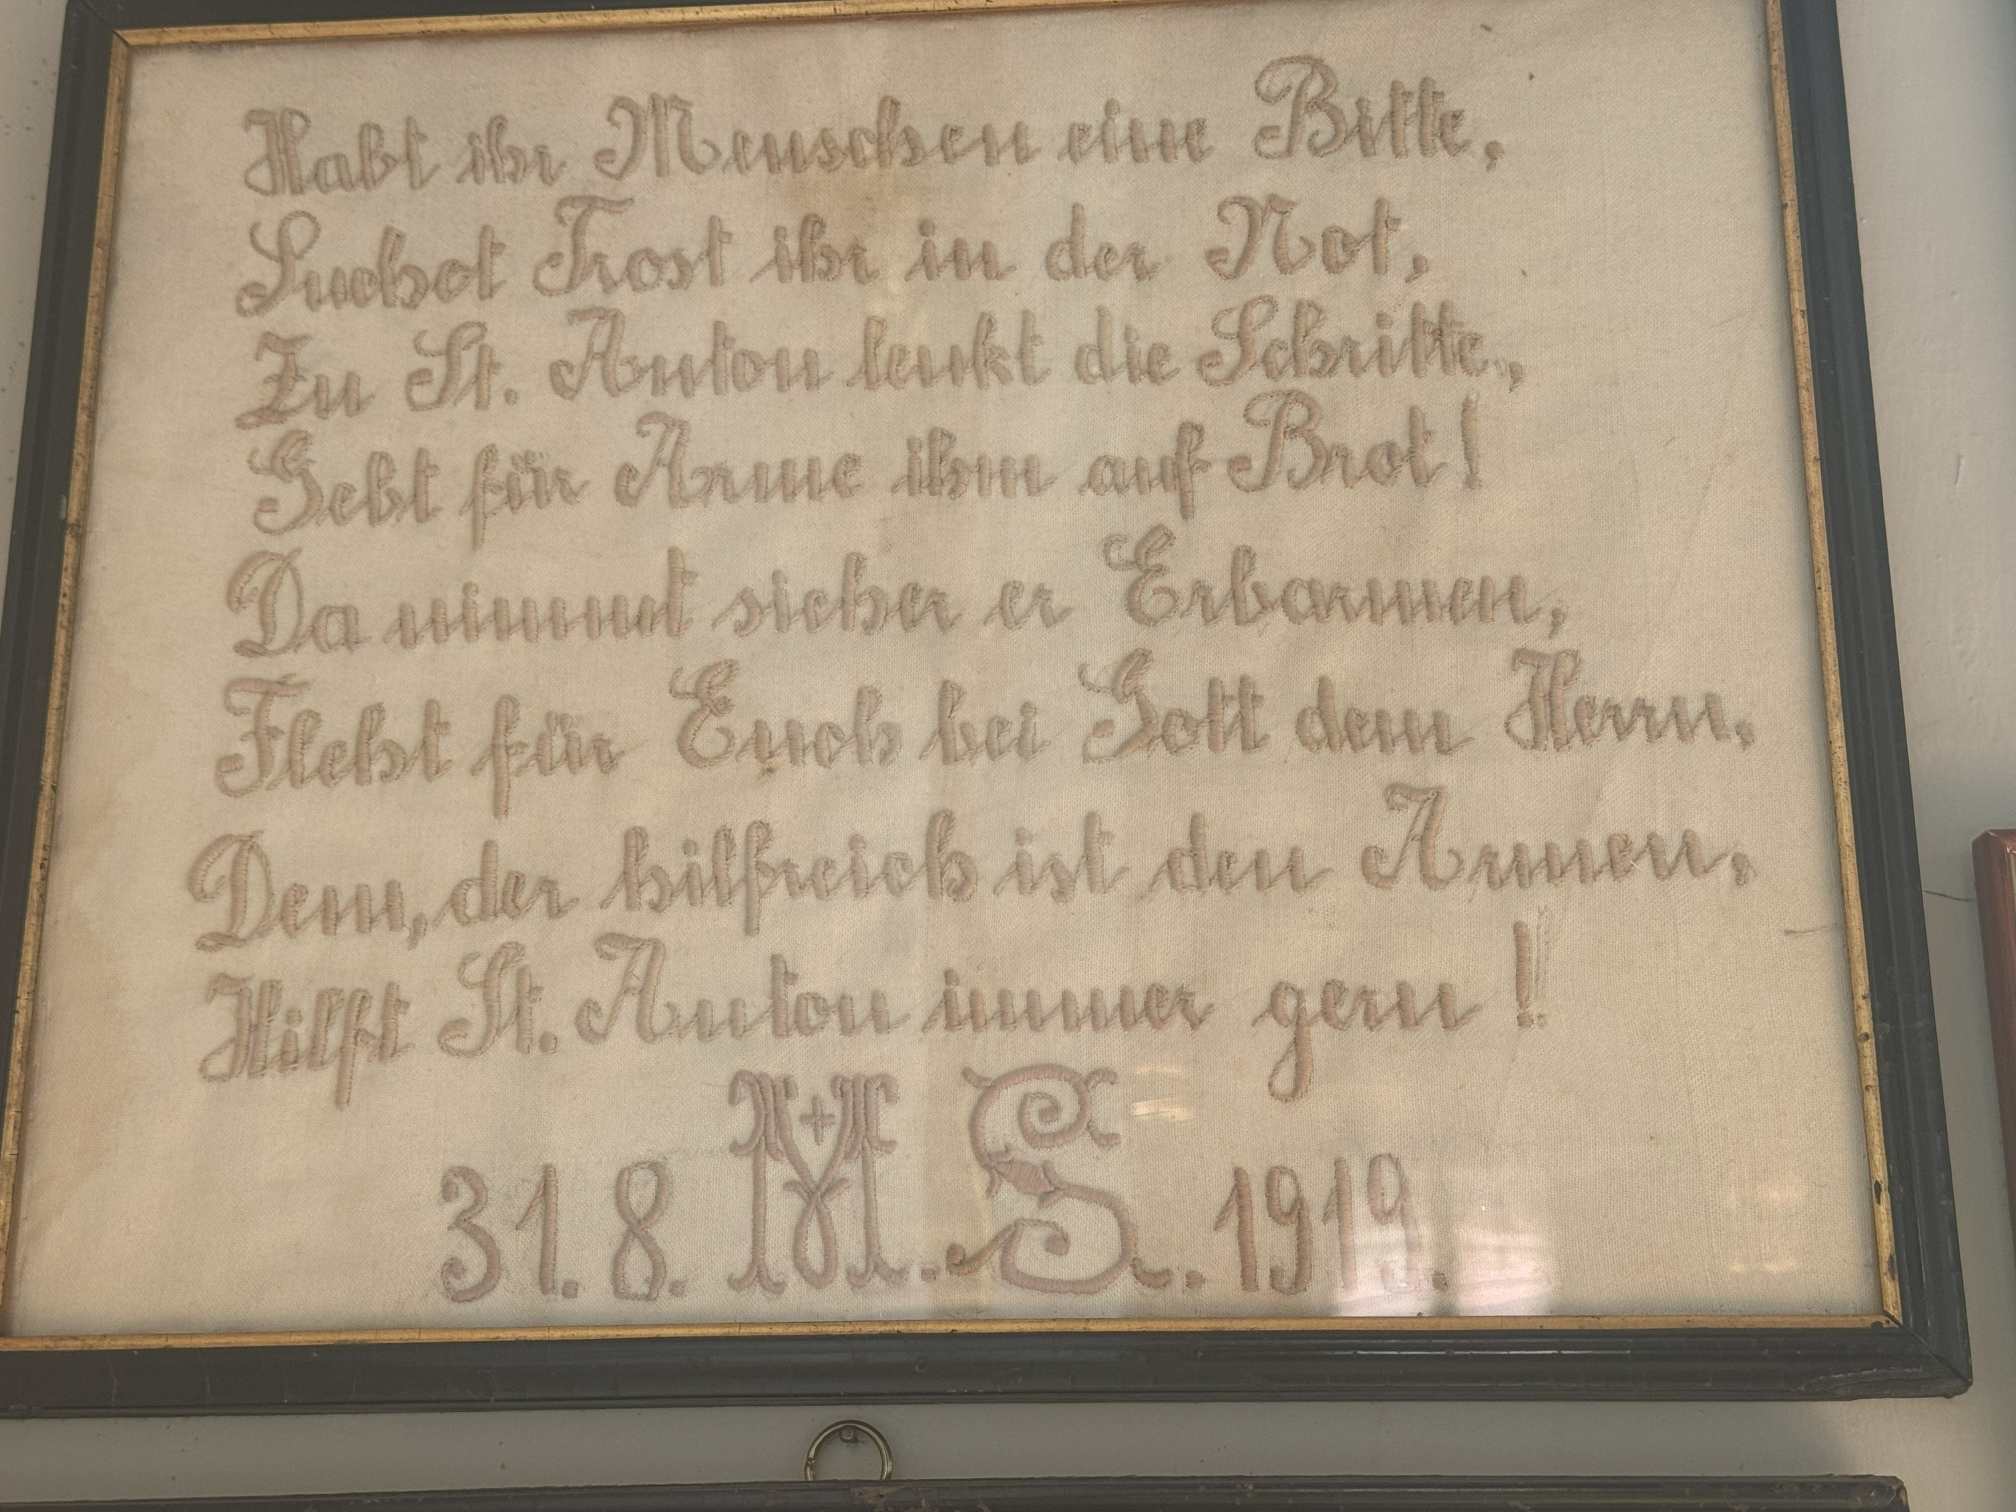 Habt ihr Menschen eine Bitte,
Suchet Trost ihr in der Not,
Zu St. Anton lenkt die Schritte,
Gebt für Arme ihm auf Brot!
Da nimmt sicher er Erbarmen,
Fleht für Euch bei Gott dem Herrn,
Dem, der hilfreich ist den Armen,
Hilft St. Anton immer gern!
31. 8. M. S. 1919.